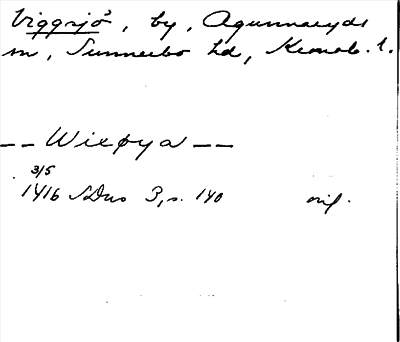 Viggsjö, by, Agunnaryds
sn, Sunnerbo hd, Kronob. l.
-- Wixøya --
3/5
1416 SDns 3, s. 140 orig.